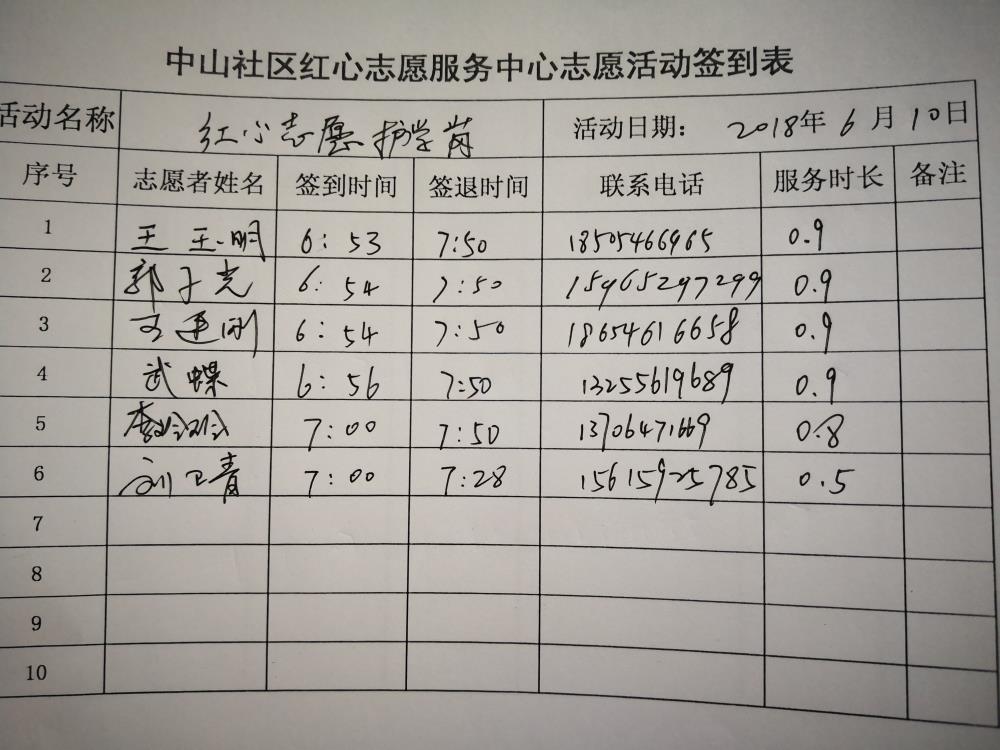 中山社区红心志愿服务中心志愿活动签到表
活动名称 红心志愿护学岗 活动日期： 2018年 6 月 10日
序号 志愿者姓名 签到时间 签退时间 联系电话 服务时长 备注
1 6：53 7:50 18505466965 0.9
2 郭子光 6：54 7:50 15965297299 0.9
3 6：54 7:50 18654616658 0.9
4 武蝶 6：56 7:50 13255619689 0.9
5 7：00 7:50 13706471669 0.8
6 刘卫青 7：00 7:28 15615925785 0.5
7
8
9
10